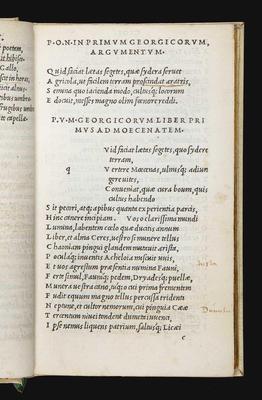 P. O. N. IN PRIMVM GEORGICORVM,
ARGVMENTVM.
Quid faciat lætas segetes, quæ sydera seruet
Agricola, ut facilem terram proscindat aratris,
Semina quo iacienda modo, cultusq; locorum
Edocuit, messes magno olim fœnore reddi.
P. V. M. GEORGICORVM LIBER PRI
MVS AD MOECENATEM.
Vid faciat lætas segetes, quo sydere
terram,
q
Vertere Mœcenas, ulmisq; adiun
gere uites,
Conueniat, quæ cura boum, quis
cultus habendo
Sit pecori, atq; apibus quanta experientia parcis,
Hinc canere incipiam. Vos o clarissima mundi
Lumina, labentem cœlo quæ ducitis annum
Liber, et alma Ceres, uestro si munere tellus
Chaoniam pingui glandem mutauit arista,
Poculaq; inuentis Acheloia miscuit uuis,
Et uos agrestum præsentia numina Fauni,
Ferte simul, Fauniq; pedem, Dryadesq; puellæ,
Munera uestra cano, tuq; o cui prima frementem
Fudit equum magno tellus percussa tridenti
Neptune, et cultor nemorum, cui pinguia Cææ
Tercentum niuei tondent dumeta iuuenci,
Ipse nemus liquens patrium, saltusq; Licæi
c